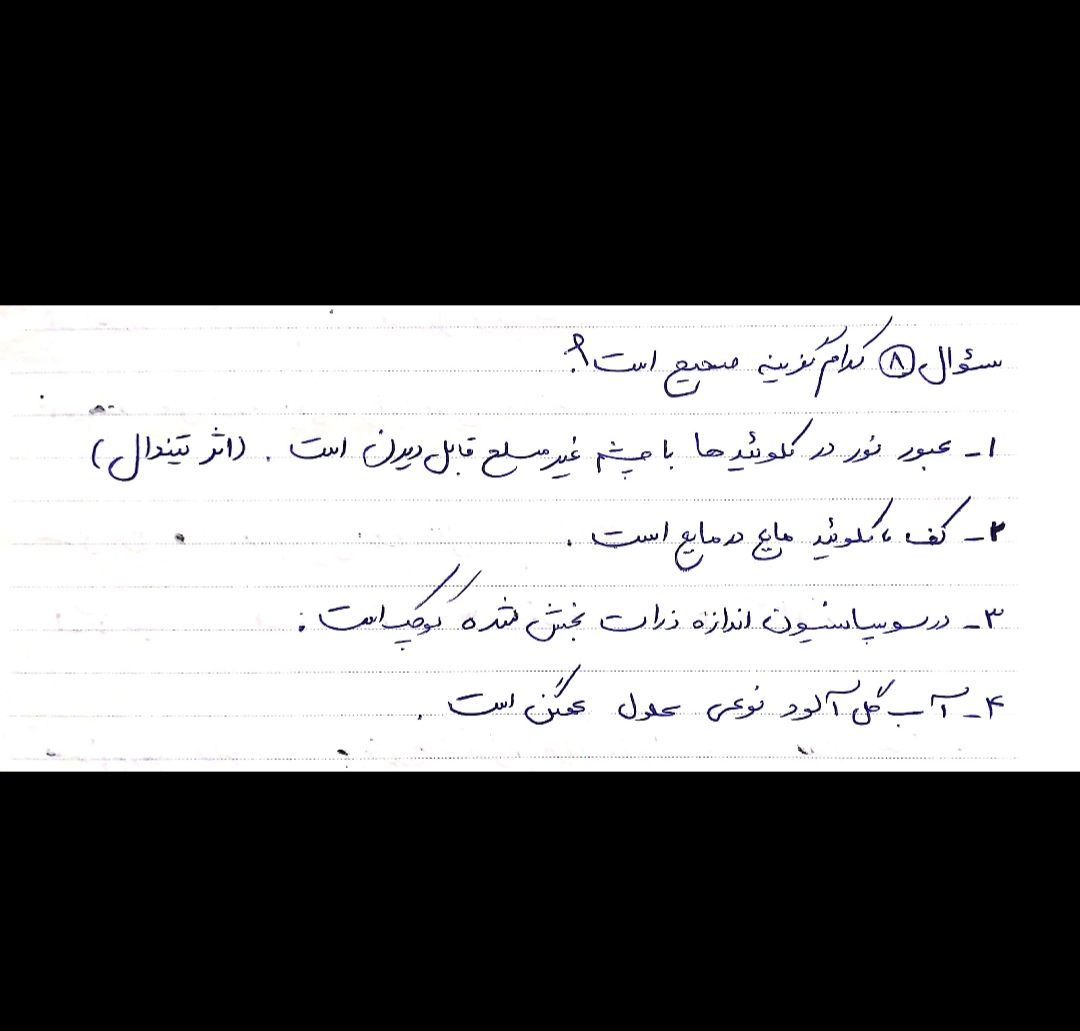 سؤال ۸ کدام گزینه صحیح است؟
۱- عبور نور در کلوئیدها با چشم غیرمسلح قابل دیدن است . (اثر تیندال)
۲- کف ، کلوئید مایع در مایع است .
۳- در سوسپانسیون اندازه ذرات بخش شده کوچک است :
۴- آب گل آلود نوعی محلول همگن است .